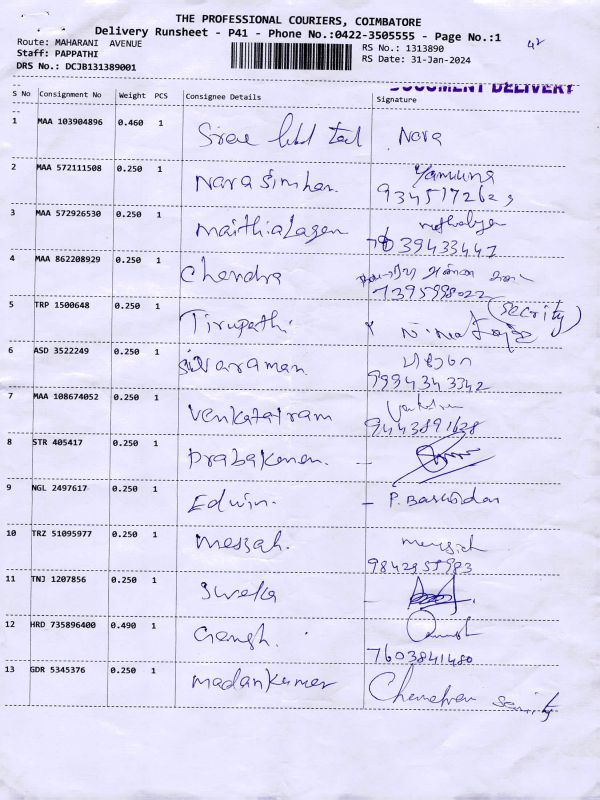 THE PROFESSIONAL COURIERS, COIMBATORE
Delivery Runsheet - P41 - Phone No.:0422-3505555 - Page No.:1
42
Route: MAHARANI AVENUE
RS No.: 1313890
Staff: PAPPATHI
RS Date: 31-Jan-2024
DRS No.: DCJB131389001
DOCUMENT DELIVERY
S No Consignment No Weight PCS Consignee Details Signature
1 MAA 103904896 0.460 1 Nara
2 MAA 572111508 0.250 1 Narasimhan. Yamuna
3 MAA 572926530 0.250 1
4 MAA 862208929 0.250 1 Chendra
7395998022
5 TRP 1500648 0.250 1 Tirupathi. (Security)
6 ASD 3522249 0.250 1 Sivaraman
9994343342
7 MAA 108674052 0.250 1 Venkatatram
9443891628
8 STR 405417 0.250 1 Prabakanan. -
9 NGL 2497617 0.250 1 Edwin. - P. Baskaran
10 TRZ 51095977 0.250 1 Messah.
11 TNJ 1207856 0.250 1 Sweka -
12 HRD 735896400 0.490 1
7603841480
13 GDR 5345376 0.250 1 Madankumar